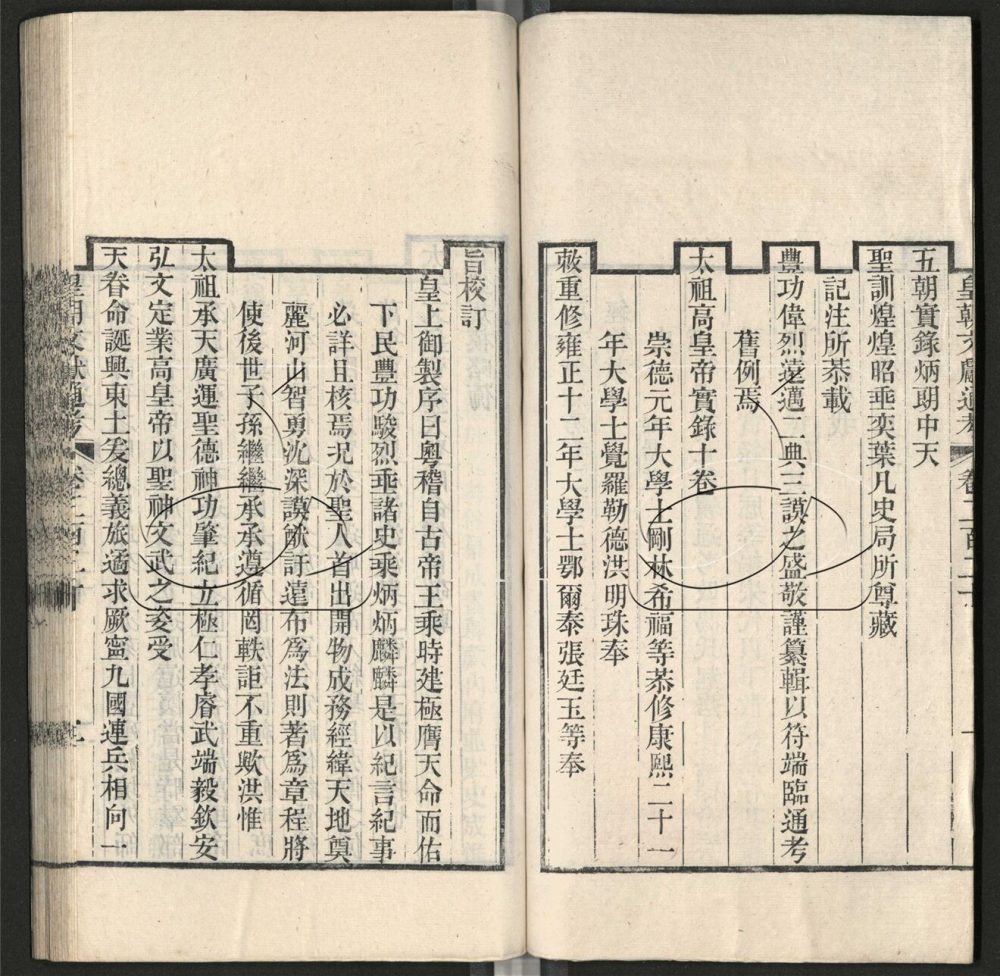 五朝實錄炳朗中天
聖訓煌煌昭垂奕葉凡史局所尊藏
記注所恭載
豐功偉烈遠邁二典三謨之盛敬謹纂輯以符端臨通考
舊例焉
太祖高皇帝實錄十卷
崇德元年大學士剛林希福等恭修康熙二十一
年大學士覺羅勒德洪明珠奉
敕重修雍正十二年大學士鄂爾泰張廷玉等奉
旨校訂
皇上御製序曰粵稽自古帝王乘時建極膺天命而佑
下民豐功駿烈垂諸史乘炳炳麟麟是以紀言紀事
必詳且核焉況於聖人首出開物成務經緯天地奠
麗河山智勇沈深謨猷訏遠布為法則著為章程將
使後世子孫繼繼承承遵循罔軼詎不重歟洪惟
太祖承天廣運聖德神功肇紀立極仁孝睿武端毅欽安
弘文定業高皇帝以聖神文武之姿受
天眷命誕興東土爰總義旅遹求厥寧九國連兵相向一
皇朝文獻通考